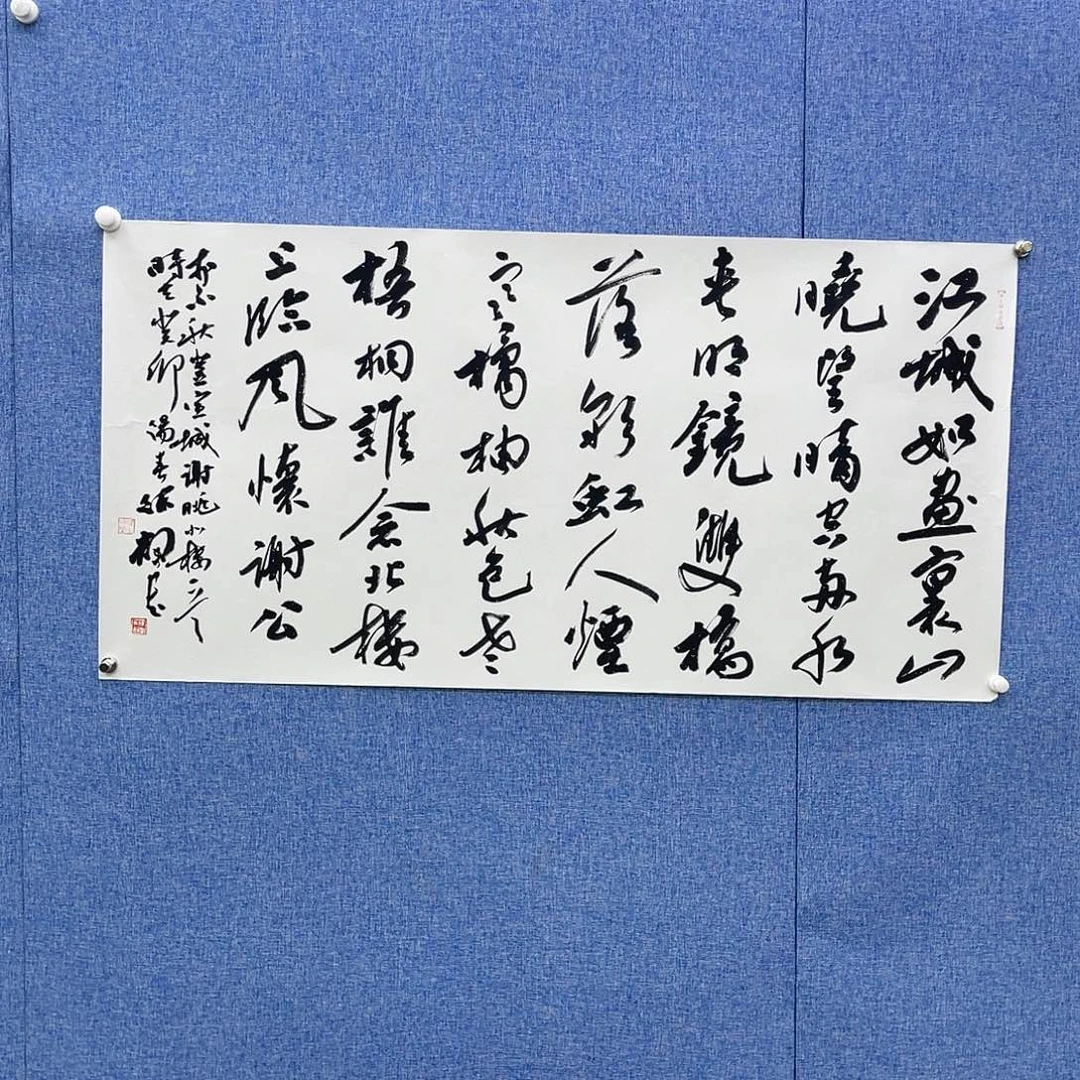 江城如畫裏山
曉望晴空兩水
夾明鏡雙橋
落彩虹人煙
寒橘柚秋色老
梧桐誰念北樓
上臨風懷謝公
李白秋登宣城謝朓北樓一首
時在癸卯